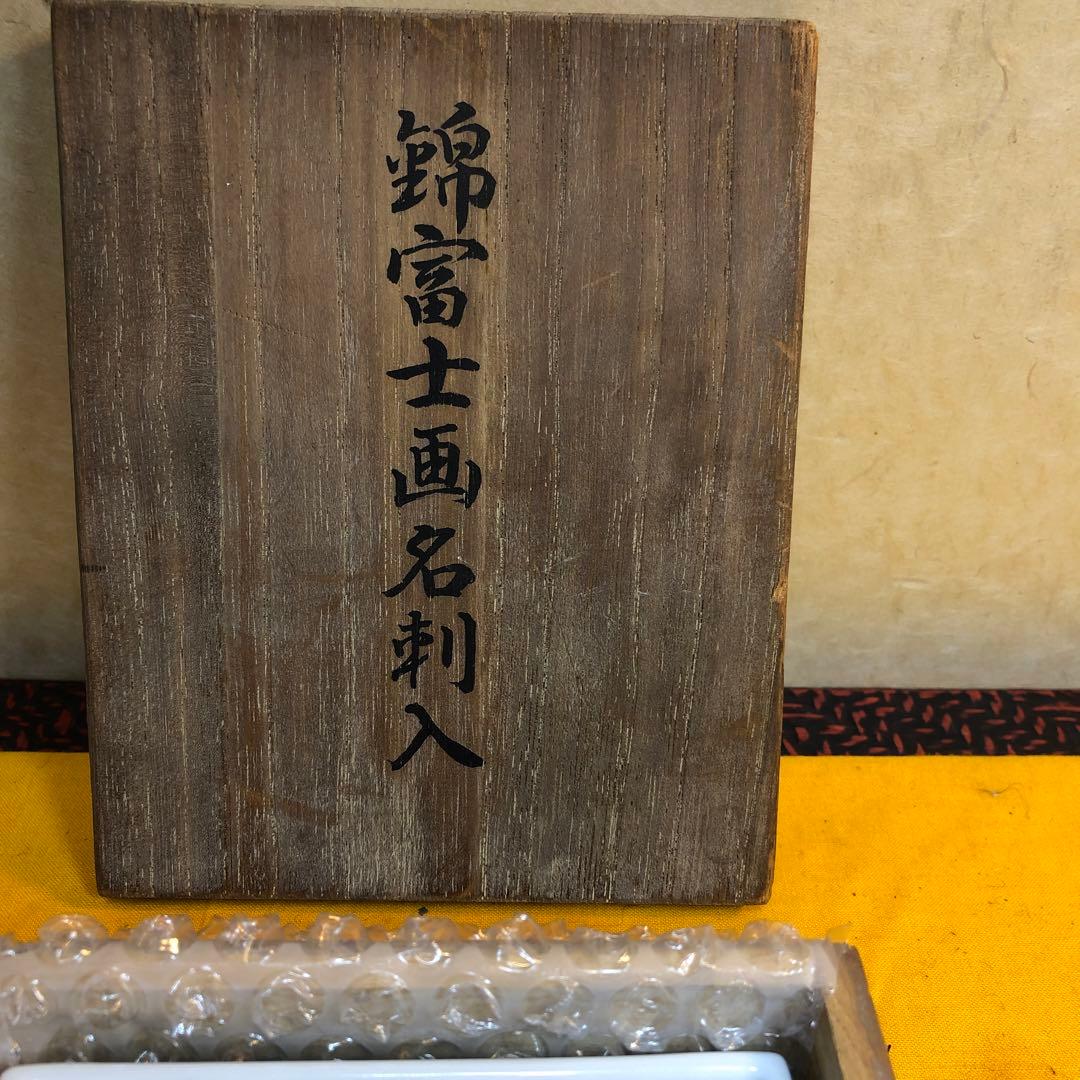 錦富士画名刺入